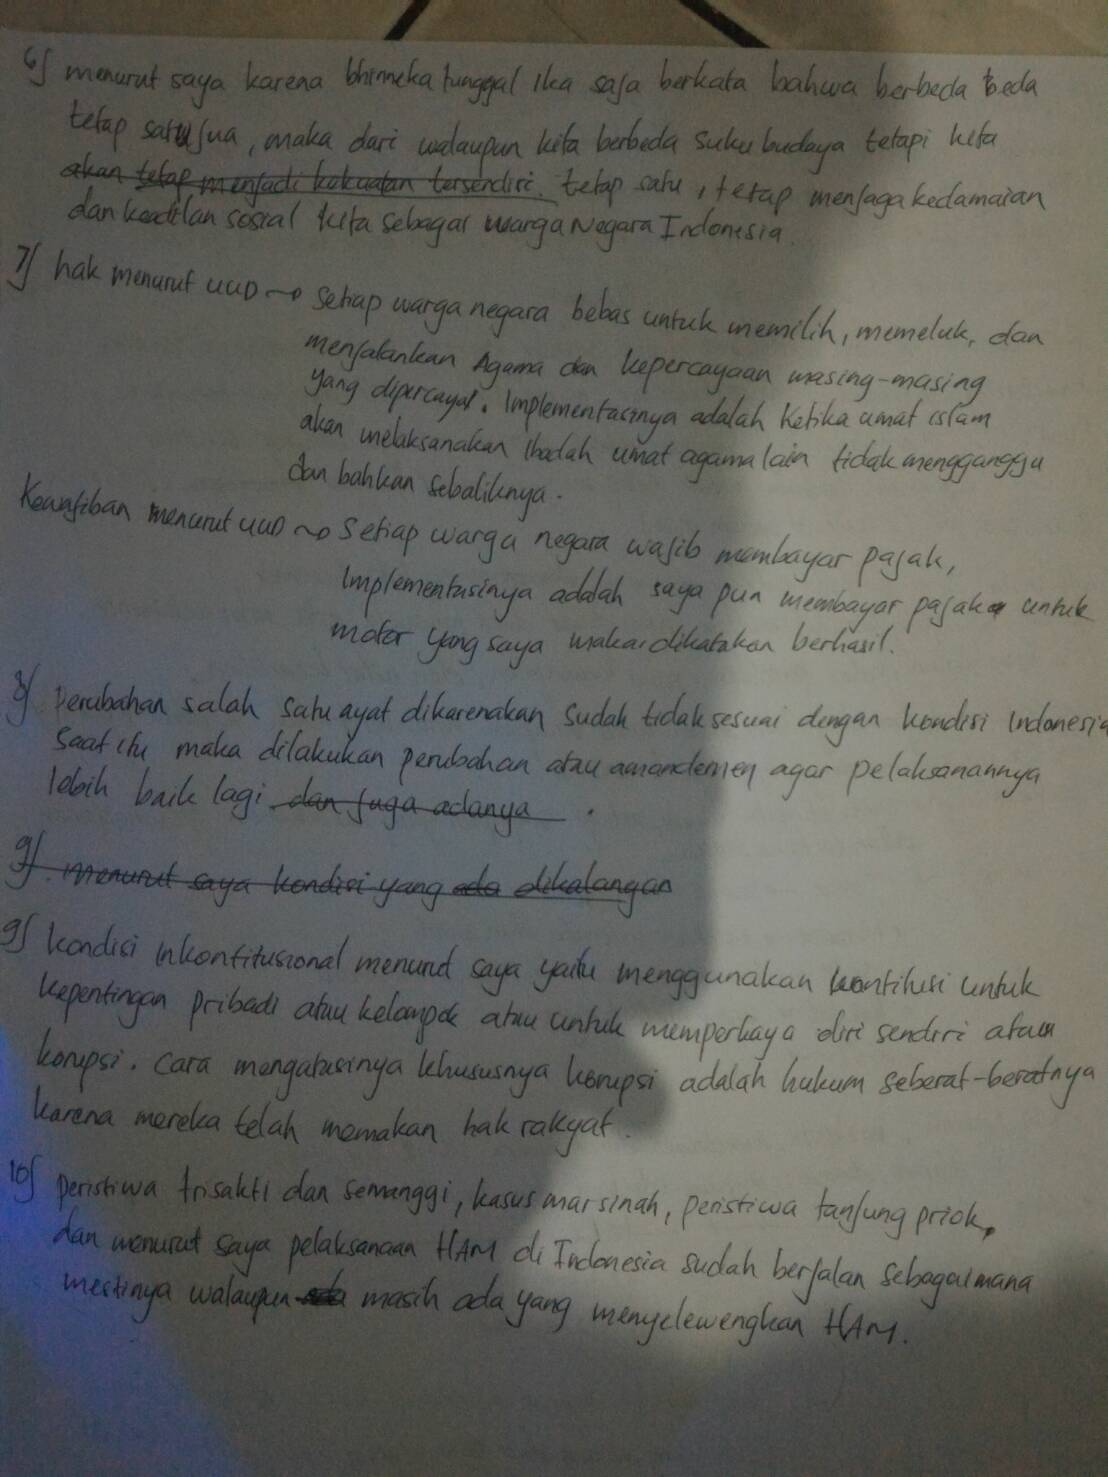 6) menurut saya karena bhinneka tunggal ika saja berkata bahwa berbeda beda
tetap satu jua, maka dari walaupun kita berbeda suku budaya tetapi kita
akan tetap menjadi kekuatan tersendiri. tetap satu, tetap menjaga kedamaian
dan keadilan sosial kita sebagai warga Negara Indonesia.
7) hak menurut UUD → Setiap warga negara bebas untuk memilih, memeluk, dan
menjalankan Agama dan kepercayaan masing-masing
yang dipercayai. Implementasinya adalah Ketika umat islam
akan melaksanakan Ibadah umat agama lain tidak mengganggu
dan bahkan sebaliknya.
Kewajiban menurut UUD → Setiap warga negara wajib membayar pajak,
Implementasinya adalah saya pun membayar pajak untuk
motor yang saya makai dikatakan berhasil.
8) Perubahan salah satu ayat dikarenakan sudah tidak sesuai dengan kondisi Indonesia
saat itu maka dilakukan perubahan atau amandemen agar pelaksanannya
lebih baik lagi dan juga adanya .
9) . Menurut saya kondisi yang ada dikalangan
9) kondisi inkontitusional menurut saya yaitu menggunakan kontitusi untuk
kepentingan pribadi atau kelompok atau untuk memperkaya diri sendiri atau
korupsi. cara mengatasinya khususnya korupsi adalah hukum seberat-beratnya
karena mereka telah memakan hak rakyat.
10) peristiwa trisakti dan semanggi, kasus marsinah, peristiwa tanjung priok,
dan menurut saya pelaksanaan HAM di Indonesia sudah berjalan sebagaimana
mestinya walaupun masih ada yang menyelewengkan HAM.